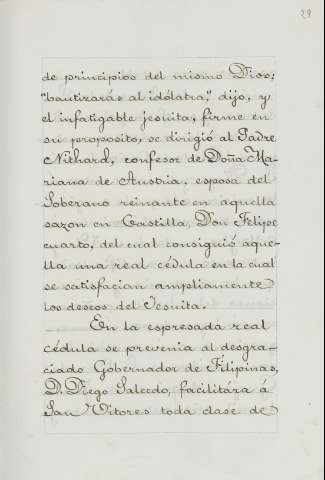 29
de principios del mismo Dios:
"bautizarás al idólatra," dijo, y
el infatigable jesuita, firme en
su proposito, se dirigió al Padre
Nithard, confesor de Doña Ma-
riana de Austria, esposa del
Soberano reinante en aquella
sazon en Castilla, Don Felipe
cuarto, del cual consiguió aque-
lla una real cédula en la cual
se satisfacian ampliamente
los deseos del Jesuita.
En la espresada real
cédula se prevenia al desgra-
ciado Gobernador de Filipinas,
D. Diego Salcedo, facilitára á
San Vitores toda clase de